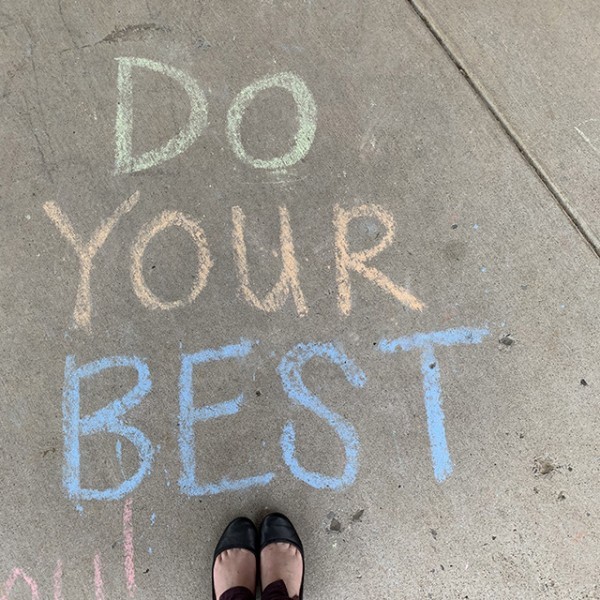 DO
YOUR
BEST